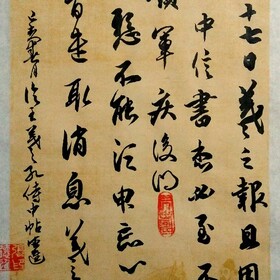 十七日羲之報且因
中信書想必至不
領軍疾後問
懸不能須臾忘心
旨遣取消息羲之
春月臨王羲之孔侍中帖